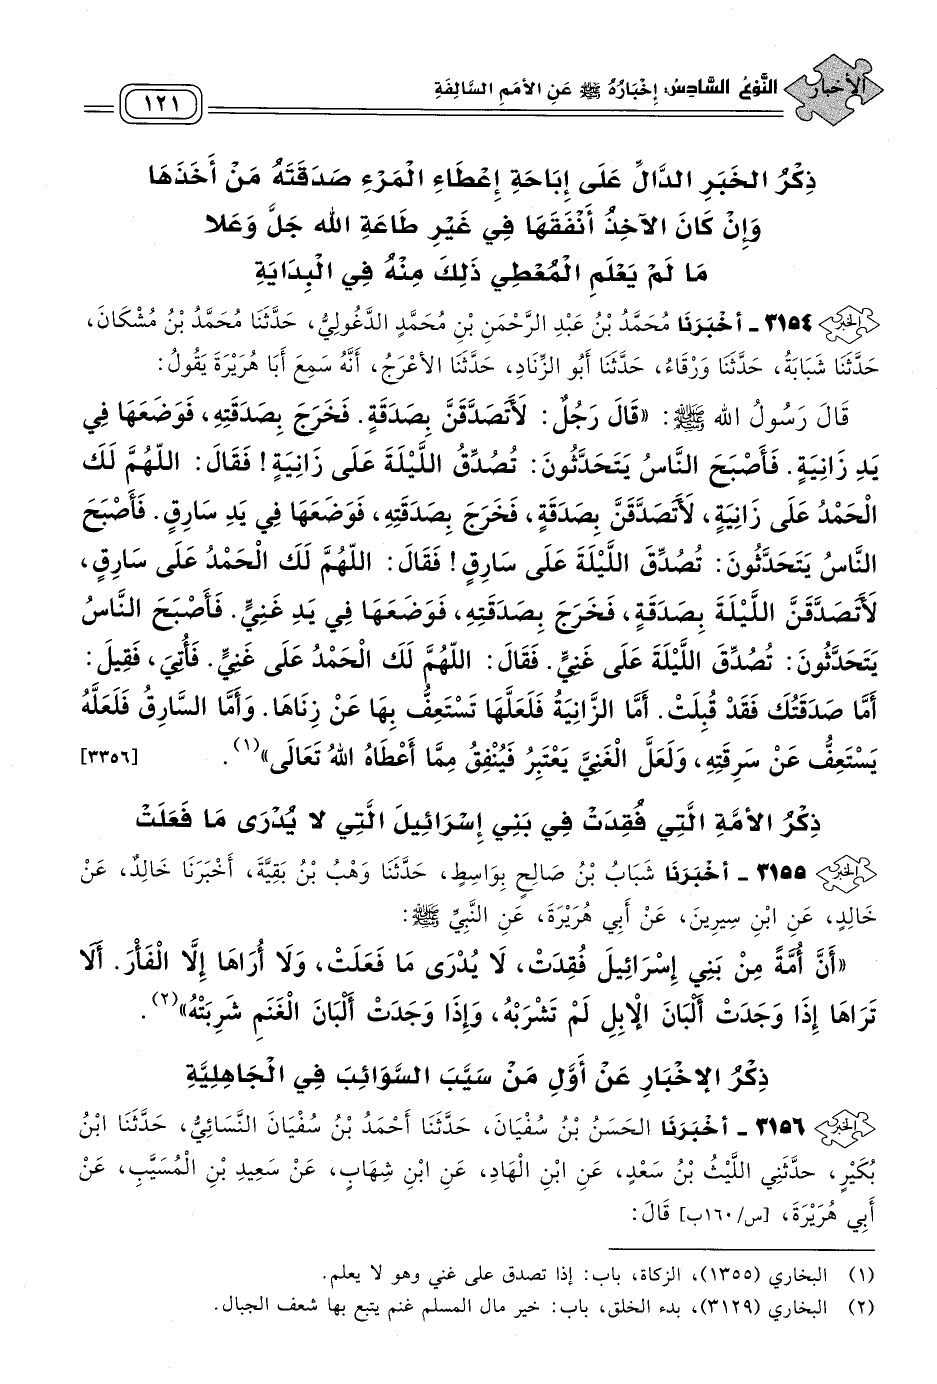 الأخبار
النَّوْعُ السَّادِسُ: إِخْبَارُهُ ﷺ عَنِ الأُمَمِ السَّالِفَةِ
١٢١
ذِكْرُ الخَبَرِ الدَّالِّ عَلَى إِبَاحَةِ إِعْطَاءِ الْمَرْءِ صَدَقَتَهُ مَنْ أَخَذَهَا
وَإِنْ كَانَ الآخِذُ أَنْفَقَهَا فِي غَيْرِ طَاعَةِ الله جَلَّ وَعَلا
مَا لَمْ يَعْلَمِ الْمُعْطِي ذَلِكَ مِنْهُ فِي الْبِدَايَةِ
الخبر ٣١٥٤ ـ أخْبَرَنَا مُحَمَّدُ بْنُ عَبْدِ الرَّحْمَنِ بْنِ مُحَمَّدٍ الدَّغُولِيُّ، حَدَّثَنَا مُحَمَّدُ بْنُ مُشْكَانَ،
حَدَّثَنَا شَبَابَةُ، حَدَّثَنَا وَرْقَاءُ، حَدَّثَنَا أَبُو الزِّنَادِ، حَدَّثَنَا الأعْرَجُ، أَنَّهُ سَمِعَ أَبَا هُرَيْرَةَ يَقُولُ:
قَالَ رَسُولُ الله ﷺ: «قَالَ رَجُلٌ: لَأَتَصَدَّقَنَّ بِصَدَقَةٍ. فَخَرَجَ بِصَدَقَتِهِ، فَوَضَعَهَا فِي
يَدِ زَانِيَةٍ. فَأَصْبَحَ النَّاسُ يَتَحَدَّثُونَ: تُصُدِّقُ اللَّيْلَةَ عَلَى زَانِيَةٍ! فَقَالَ: اللَّهُمَّ لَكَ
الْحَمْدُ عَلَى زَانِيَةٍ، لَأَتَصَدَّقَنَّ بِصَدَقَةٍ، فَخَرَجَ بِصَدَقَتِهِ، فَوَضَعَهَا فِي يَدِ سَارِقٍ. فَأَصْبَحَ
النَّاسُ يَتَحَدَّثُونَ: تُصُدِّقَ اللَّيْلَةَ عَلَى سَارِقٍ! فَقَالَ: اللَّهُمَّ لَكَ الْحَمْدُ عَلَى سَارِقٍ،
لَأَتَصَدَّقَنَّ اللَّيْلَةَ بِصَدَقَةٍ، فَخَرَجَ بِصَدَقَتِهِ، فَوَضَعَهَا فِي يَدِ غَنِيٍّ. فَأَصْبَحَ النَّاسُ
يَتَحَدَّثُونَ: تُصُدِّقَ اللَّيْلَةَ عَلَى غَنِيٍّ. فَقَالَ: اللَّهُمَّ لَكَ الْحَمْدُ عَلَى غَنِيٍّ. فَأُتِيَ، فَقِيلَ:
أَمَّا صَدَقَتُكَ فَقَدْ قُبِلَتْ. أَمَّا الزَّانِيَةُ فَلَعَلَّهَا تَسْتَعِفُّ بِهَا عَنْ زِنَاهَا. وَأَمَّا السَّارِقُ فَلَعَلَّهُ
يَسْتَعِفُّ عَنْ سَرِقَتِهِ، وَلَعَلَّ الْغَنِيَّ يَعْتَبِرُ فَيُنْفِقُ مِمَّا أَعْطَاهُ اللهُ تَعَالَى»(١). [٣٣٥٦]
ذِكْرُ الأمَّةِ الَّتِي فُقِدَتْ فِي بَنِي إِسْرَائِيلَ الَّتِي لا يُدْرَى مَا فَعَلَتْ
الخبر ٣١٥٥ ـ أخْبَرَنَا شَبَابُ بْنُ صَالِحٍ بِوَاسِطٍ، حَدَّثَنَا وَهْبُ بْنُ بَقِيَّةَ، أَخْبَرَنَا خَالِدٌ، عَنْ
خَالِدٍ، عَنِ ابْنِ سِيرِينَ، عَنْ أَبِي هُرَيْرَةَ، عَنِ النَّبِيِّ ﷺ:
«أَنَّ أُمَّةً مِنْ بَنِي إِسْرَائِيلَ فُقِدَتْ، لَا يُدْرَى مَا فَعَلَتْ، وَلَا أُرَاهَا إِلَّا الْفَأْرَ. أَلَا
تَرَاهَا إِذَا وَجَدَتْ أَلْبَانَ الإِبِلِ لَمْ تَشْرَبْهُ، وَإِذَا وَجَدَتْ أَلْبَانَ الْغَنَمِ شَرِبَتْهُ»(٢).
ذِكْرُ الإخْبَارِ عَنْ أَوَّلِ مَنْ سَيَّبَ السَّوَائِبَ فِي الْجَاهِلِيَّةِ
الخبر ٣١٥٦ ـ أخْبَرَنَا الحَسَنُ بْنُ سُفْيَانَ، حَدَّثَنَا أَحْمَدُ بْنُ سُفْيَانَ النَّسَائِيُّ، حَدَّثَنَا ابْنُ
بُكَيْرٍ، حدَّثَنِي اللَّيْثُ بْنُ سَعْدٍ، عَنِ ابْنِ الْهَادِ، عَنِ ابْنِ شِهَابٍ، عَنْ سَعِيدِ بْنِ الْمُسَيَّبِ، عَنْ
أَبِي هُرَيْرَةَ، [س/١٦٠ب] قَالَ:
(١) البخاري (١٣٥٥)، الزكاة، باب: إذا تصدق على غني وهو لا يعلم.
(٢) البخاري (٣١٢٩)، بدء الخلق، باب: خير مال المسلم غنم يتبع بها شعف الجبال.